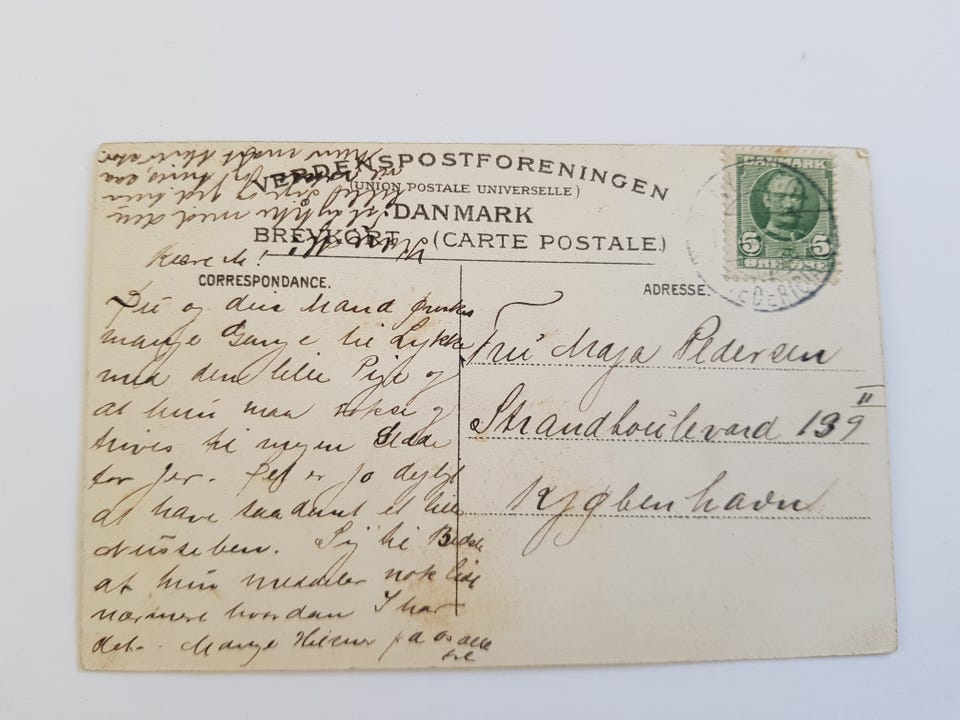 VERDENSPOSTFORENINGEN
(UNION POSTALE UNIVERSELLE)
DANMARK
BREVKORT (CARTE POSTALE.)
DANMARK
5 5
ØRE ØRE
Kære M!
CORRESPONDANCE.
Du og din Mand ønskes
mange Gange til Lykke
med den lille Pige og
at hun maa vokse og
trives til megen Glæde
for Jer. Det er jo dejligt
at have saadant et lille
Nusseben. Sig til Bedste
at hun meddeler nok lidt
nærmere hvordan I har
det. Mange Hilsner fra os alle
til
ADRESSE.
Fru Maja Pedersen
Strandboulevard 139 II
Kjøbenhavn
til lykke med den